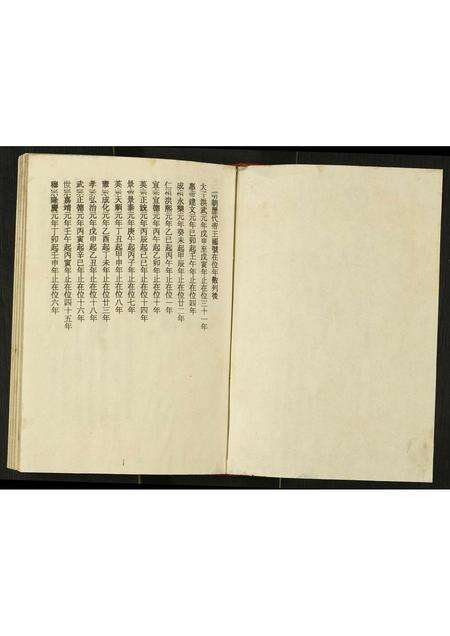 明朝歷代帝王國號在位年數列後
太祖洪武元年戊申至戊寅年止在位三十一年
惠帝建文元年已卯起壬午年止在位四年
成祖永樂元年癸未起甲辰年止在位廿二年
仁宗洪熙元年乙巳起丙午年止在位一年
宣宗宣德元年丙午起乙卯年止在位十年
英宗正統元年丙辰起己巳年止在位十四年
景宗景泰元年庚午起丙子年止在位七年
英宗天順元年丁丑起甲申年止在位八年
憲宗成化元年乙酉起丁未年止在位廿三年
孝宗弘治元年戊申起乙丑年止在位十八年
武宗正德元年丙寅起辛巳年止在位十六年
世宗嘉靖元年壬午起丙寅年止在位四十五年
穆宗隆慶元年丁卯起壬申年止在位六年